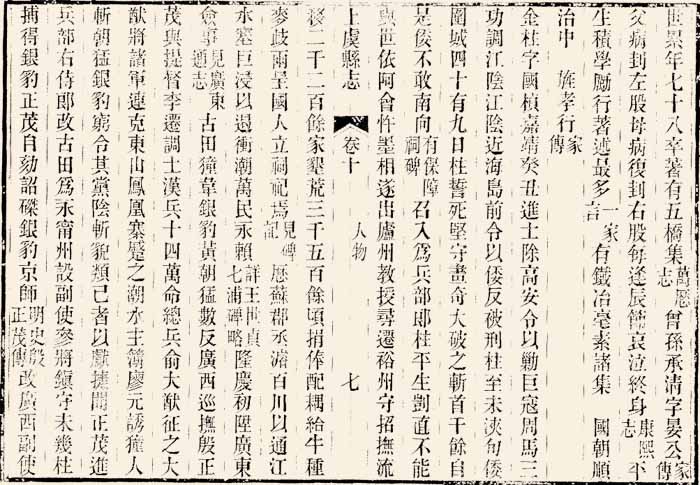 世累年七十八卒著有五橋集萬曆志曾孫承清字晏公家傳
父病刲左股母病復刲右股每逢辰節哀泣終身康熙志平
生積學勵行著述最多一家言有鐵冶毫素諸集 國朝順
治中 旌孝行家傳
金柱字國楨嘉靖癸丑進士除高安令以勦巨寇周馬三
功調江陰江陰近海島前令以倭反被刑柱至未浹旬倭
圍城四十有九日柱誓死堅守畫奇大破之斬首千餘自
是倭不敢南向有保障祠碑召入爲兵部郎柱平生剴直不能
與世依阿會忤墨相遂出廬州教授尋遷裕州守招撫流
上虞縣志 卷十 人物 七
移二千二百餘家墾荒三千五百餘頃捐俸配耦給牛種
麥歧兩呈國人立祠祀焉見碑記歷蘇郡丞濬百川以通江
水塞巨浸以遏衝潮萬民永賴詳王世貞七浦碑略隆慶初陞廣東
僉事見廣東通志古田獞韋銀豹黃朝猛數反廣西巡撫殷正
茂與提督李遷調土漢兵十四萬命總兵俞大猷征之大
猷將諸軍連克東山鳳凰寨蹙之潮水主簿廖元誘獞人
斬朝猛銀豹窮令其黨陰斬貌類己者以獻捷聞正茂進
兵部右侍郎改古田爲永甯州設副使參將鎮守未幾柱
捕得銀豹正茂自劾詔磔銀豹京師明史殷正茂傳改廣西副使